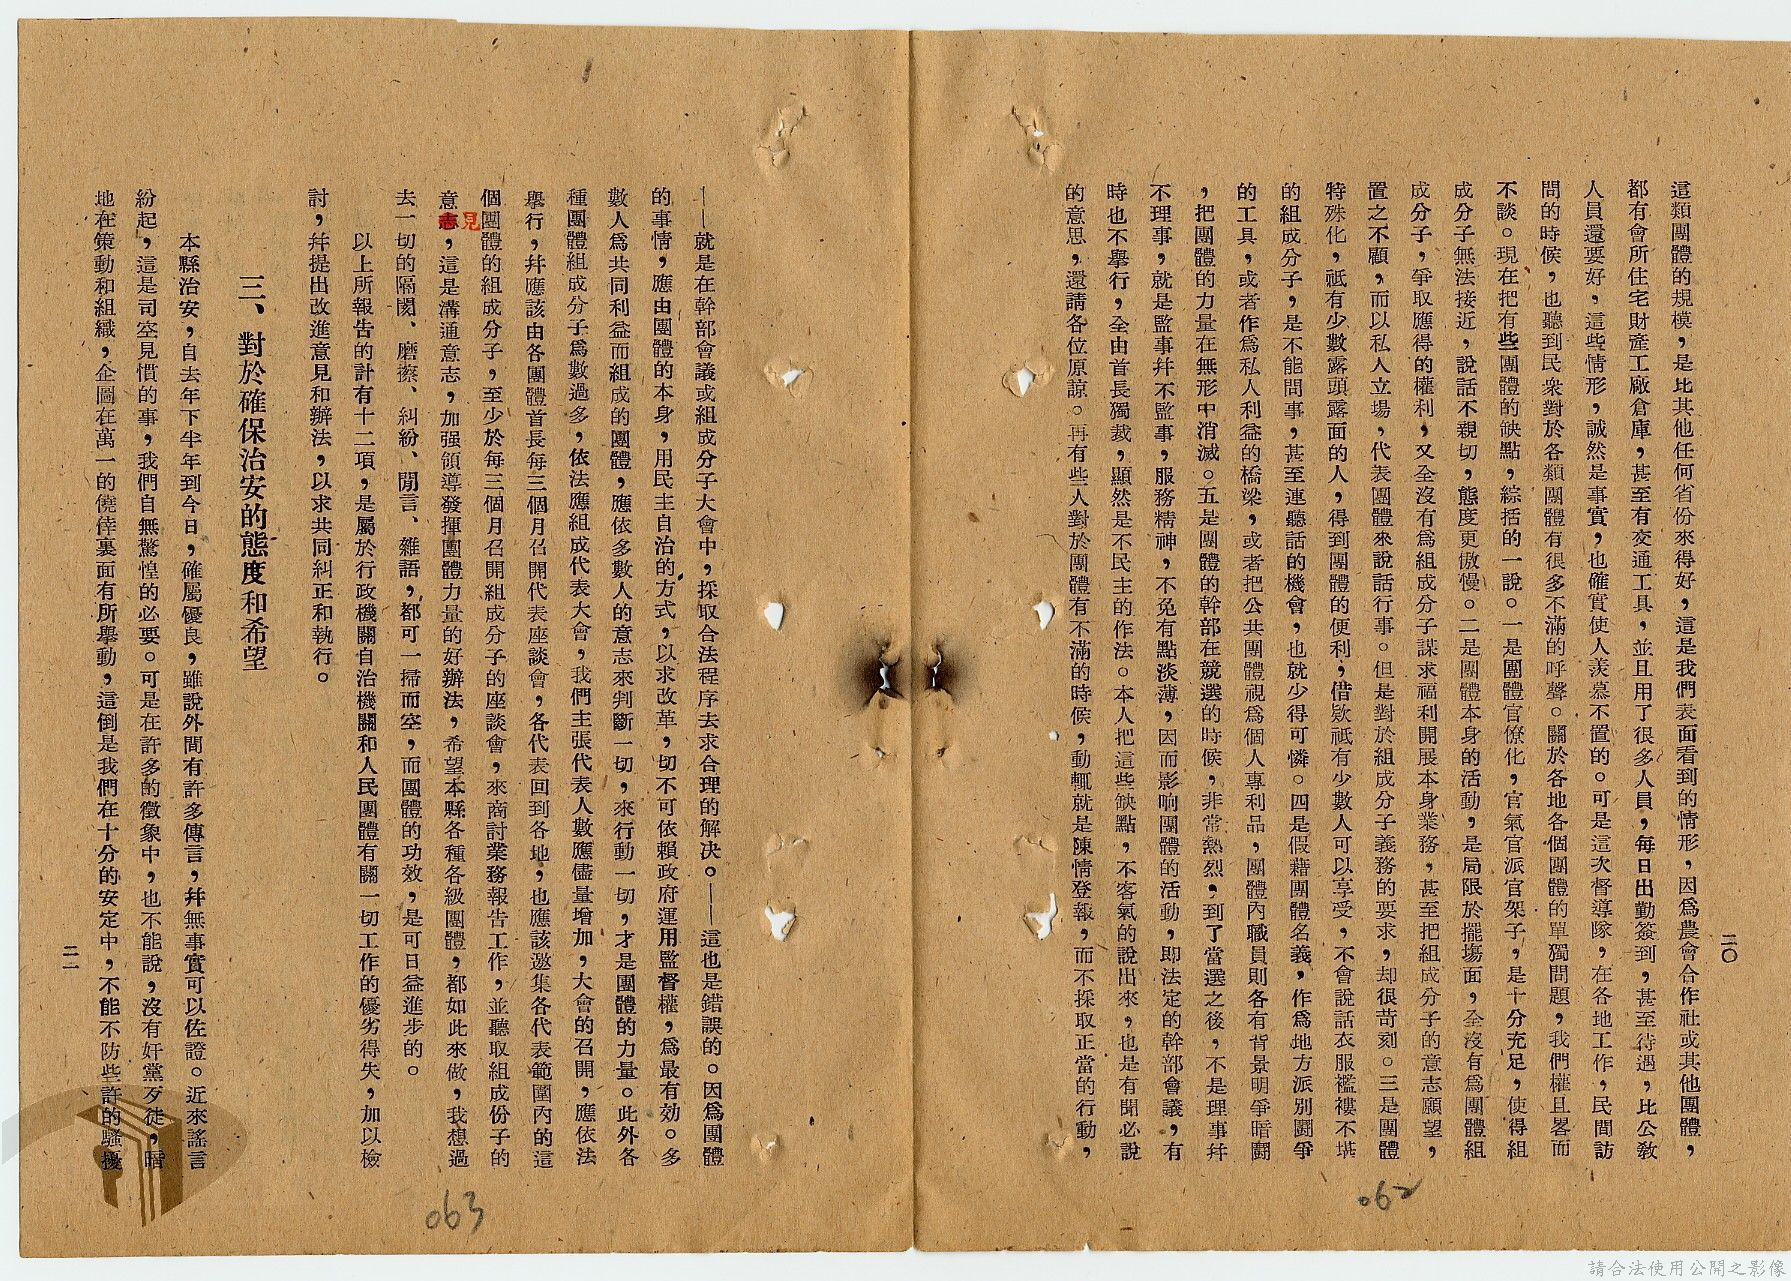 二〇
這類團體的規模，是比其他任何省份來得好，這是我們表面看到的情形，因爲農會合作社或其他團體，
都有會所住宅財產工廠倉庫，甚至有交通工具，並且用了很多人員，每日出勤簽到，甚至待遇，比公教
人員還要好，這些情形，誠然是事實，也確實使人羨慕不置的。可是這次督導隊，在各地工作，民間訪
問的時候，也聽到民衆對於各類團體有很多不滿的呼聲。關於各地各個團體的單獨問題，我們權且畧而
不談。現在把有些團體的缺點，綜括的一說。一是團體官僚化，官氣官派官架子，是十分充足，使得組
成分子無法接近，說話不親切，態度更傲慢。二是團體本身的活動，是局限於擺塲面，全沒有爲團體組
成分子，爭取應得的權利，又全沒有爲組成分子謀求福利開展本身業務，甚至把組成分子的意志願望，
置之不顧，而以私人立場，代表團體來說話行事。但是對於組成分子義務的要求，却很苛刻。三是團體
特殊化，祇有少數露頭露面的人，得到團體的便利，借欵祇有少數人可以享受，不會說話衣服襤褸不堪
的組成分子，是不能問事，甚至連聽話的機會，也就少得可憐。四是假藉團體名義，作爲地方派別鬪爭
的工具，或者作爲私人利益的橋梁，或者把公共團體視爲個人專利品，團體內職員則各有背景明爭暗鬪
，把團體的力量在無形中消滅。五是團體的幹部在競選的時候，非常熱烈，到了當選之後，不是理事幷
不理事，就是監事幷不監事，服務精神，不免有點淡薄，因而影响團體的活動，即法定的幹部會議，有
時也不舉行，全由首長獨裁，顯然是不民主的作法。本人把這些缺點，不客氣的說出來，也是有聞必說
的意思，還請各位原諒。再有些人對於團體有不滿的時候，動輒就是陳情登報，而不採取正當的行動，
062
——就是在幹部會議或組成分子大會中，採取合法程序去求合理的解决。——這也是錯誤的。因爲團體
的事情，應由團體的本身，用民主自治的方式，以求改革，切不可依賴政府運用監督權，爲最有効。多
數人爲共同利益而組成的團體，應依多數人的意志來判斷一切，來行動一切，才是團體的力量。此外各
種團體組成分子爲數過多，依法應組成代表大會，我們主張代表人數應儘量增加，大會的召開，應依法
舉行，幷應該由各團體首長每三個月召開代表座談會，各代表回到各地，也應該邀集各代表範圍內的這
個團體的組成分子，至少於每三個月召開組成分子的座談會，來商討業務報告工作，並聽取組成份子的
意志見，這是溝通意志，加强領導發揮團體力量的好辦法，希望本縣各種各級團體，都如此來做，我想過
去一切的隔閡、磨擦、糾紛、閒言、雜語，都可一掃而空，而團體的功效，是可日益進步的。
以上所報告的計有十二項，是屬於行政機關自治機關和人民團體有關一切工作的優劣得失，加以檢
討，幷提出改進意見和辦法，以求共同糾正和執行。
三、對於確保治安的態度和希望
本縣治安，自去年下半年到今日，確屬優良，雖說外間有許多傳言，幷無事實可以佐證。近來謠言
紛起，這是司空見慣的事，我們自無驚惶的必要。可是在許多的徵象中，也不能說，沒有奸黨歹徒，暗
地在策動和組織，企圖在萬一的僥倖裏面有所舉動，這倒是我們在十分的安定中，不能不防些許的騷擾
二一
063
請合法使用公開之影像